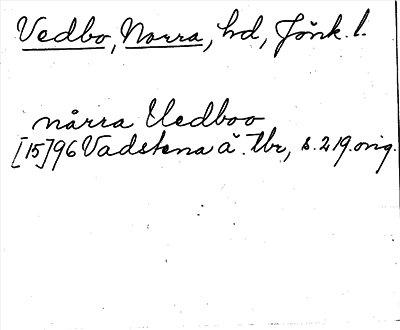 Vedbo, Norra, hd, Jönk. l.
nårra Uedboo
[15]96 Vadstena ä. tbr, s. 219. orig.